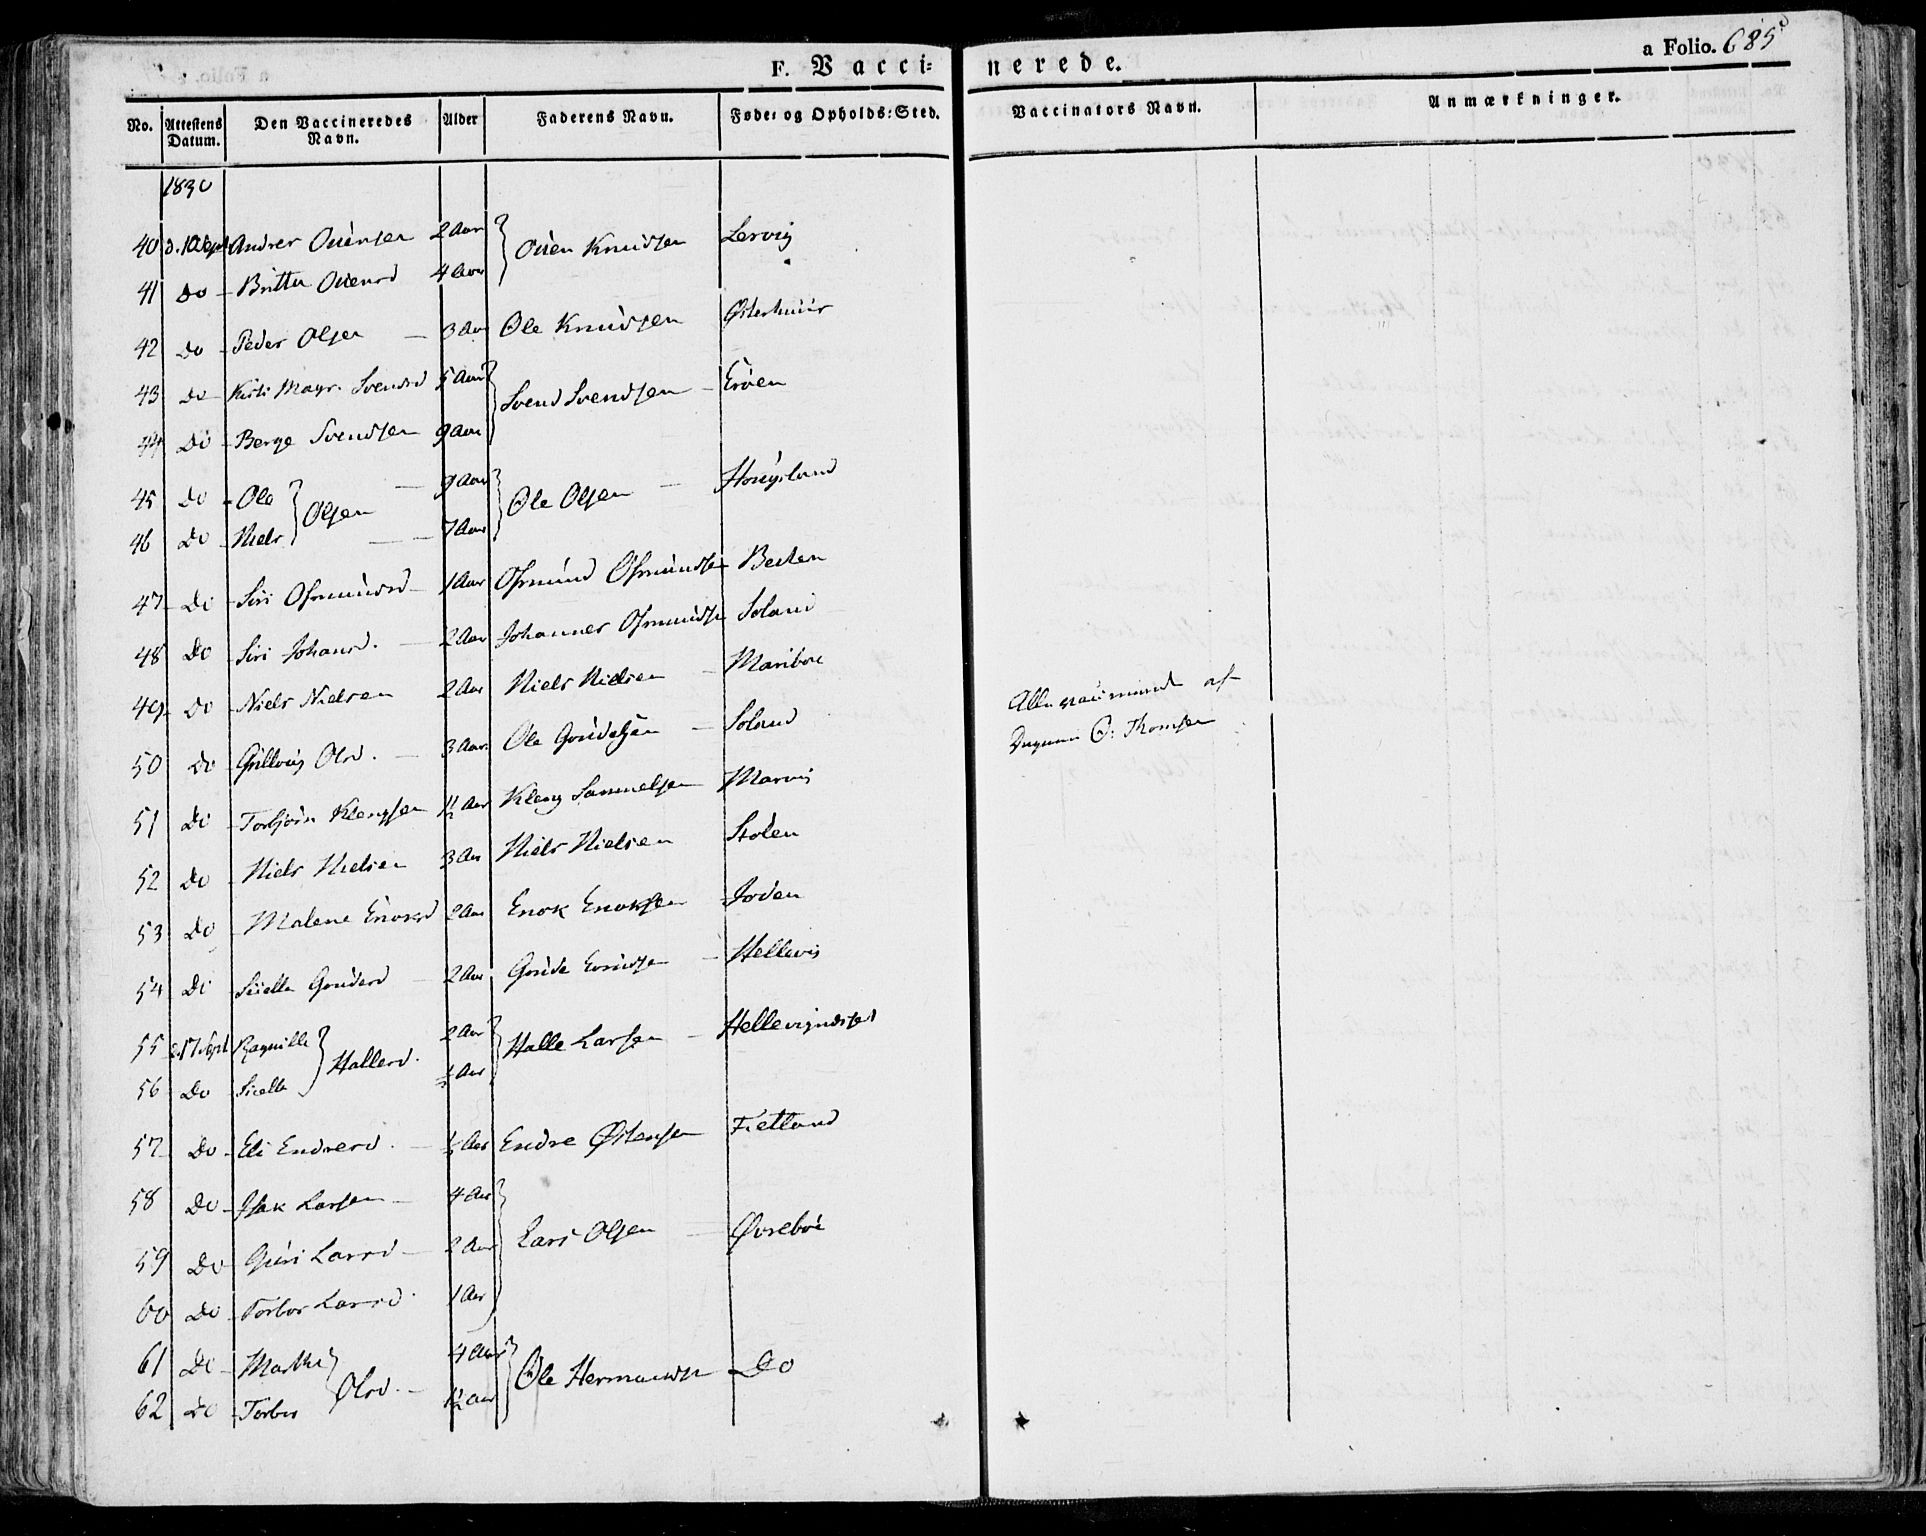 F. Vaccinerede. a Folio. 685
No. Attestens Datum. Den Vaccineredes Navn. Alder Faderens Navn. Føde: og Opholds:Sted. Vaccinators Navn. Anmærkninger.
1830
40 d. 10 Sept Andres Ouensen 2 Aar Ouen Knudsen Lervig
41 Do Britta Ouensd 4 Aar
42 Do Peder Olsen 3 Aar Ole Knudsen Østerhuus
43 Do Kirsti Magr. Svendsd 5 Aar Svend Svendsen Eroen
44 Do Berge Svendsen 9 Aar
45 Do Ole Olsen 9 Aar Ole Olsen Hougsland
46 Do Niels 7 Aar
47 Do Siri Osmundsd 1 Aar Osmund Osmundsen
48 Do Siri Johansd. 2 Aar Johannes Osmundsen Soland
49 Do Niels Nielsen 2 Aar Niels Nielsen Mariboe
Alle af
50 Do Olsd. 3 Aar Ole Goudesen Soland
O: Thomsen
51 Do Torbjørn Klengsen 1½ Aar Kleng Samuelsen Marvig
52 Do Niels Nielsen 3 Aar Niels Nielsen Stolen
53 Do Malene Enoksd 2 Aar Enok Enoksen
54 Do Sicelle Goudesd 2 Aar Goude Hellevig
55 d. 17 Sept Ragnilla Hallesd. 2 Aar Halle Larsen
56 Do Sicella ½ Aar
57 Do Eli Endresd. Aar Endre Østensen Fietland
58 Do Isak Larsen 4 Aar Lars Olsen Øvreboe
59 Do Guri Larsd 2 Aar
60 Do Torbor Larsd. 1 Aar
61 Do Marthe Olsd. 4 Aar Ole Hermansen Do
62 Do Torbor 1½ Aar